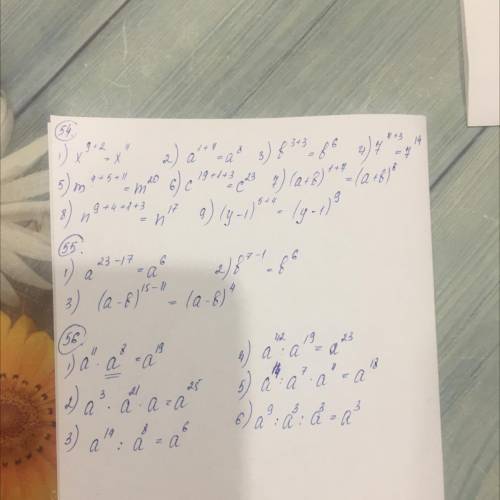 54.
1) x⁹⁺² = x¹¹  2) a¹⁺⁷ = a⁸  3) b³⁺³ = b⁶  4) 7¹¹⁺³ = 7¹⁴
5) m⁴⁺⁵⁺¹¹ = m²⁰  6) c¹⁹⁺¹⁺³ = c²³  7) (a+b)¹⁺⁷ = (a+b)⁸
8) n⁹⁺⁴⁺¹⁺³ = n¹⁷  9) (y-1)⁵⁺⁴ = (y-1)⁹
55.
1) a²³⁻¹⁷ = a⁶  2) b⁷⁻¹ = b⁶
3) (a-b)¹⁵⁻¹¹ = (a-b)⁴
56.
1) a¹¹ · a⁸ = a¹⁹
2) a³ · a²¹ · a = a²⁵
3) a¹⁴ : a⁸ = a⁶
4) a⁴² : a¹⁹ = a²³
5) a · a⁷ · a = a¹⁸
6) a⁹ : a³ : a³ = a³